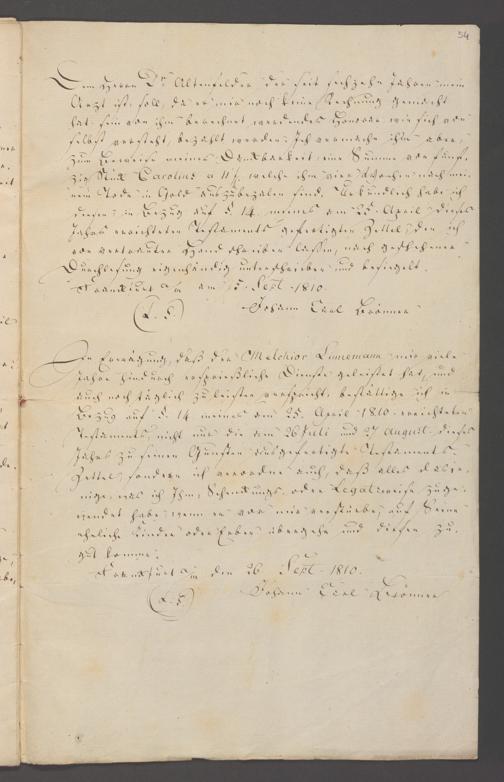 54
Dem Herrn Dr. Altenfelder der seit sechzehn Jahren mein
Arzt ist, soll, da er mir noch keine Rechnung gemacht
hat, sein von ihm berechnet werdendes Honorar, wie sich von
selbst versteht, bezahlt werden; Ich vermache ihm aber,
zum Beweise meiner Dankbarkeit eine Summe von fünf-
zig Stük Carolins a 11 f. welche ihm vier Wochen nach mei-
nem Tode in Gold auszubezalen sind. Urkundlich habe ich
diesen, in Bezug auf §. 14. meines am 25. April dieses
Jahrs errichteten Testaments gefertigten Zettel, den ich
von vertrauter Hand schreiben lassen, nach geschehener
Durchlesung eigenhändig unterschrieben und besiegelt.
Frankfurt a/m am 5. Sept. 1810.
(L. S.) Johann Carl Brönner
In Erwägung, daß der Melchior Linnemann mir viele
Jahre hindurch ersprießliche Dienste geleistet hat, und
auch noch täglich zu leisten verspricht, bestättige ich in
Bezug auf §. 14 meines am 25. April 1810. errichteten
Testaments, nicht nur die am 26 Juli und 27 August dieses
Jahrs zu seinen Gunsten ausgefertigte Testaments-
Zettel, sondern ich verordne auch, daß alles dasje-
nige, was ich Ihm, Schenkungs- oder Legatsweise zuge-
wendet habe, wenn er vor mir verstürbe, auf Seine
eheliche Kinder oder Erben übergehe und diesen zu
gut komme.
Frankfurt a/m den 26 Sept. 1810.
(L. S.) Johann Carl Brönner